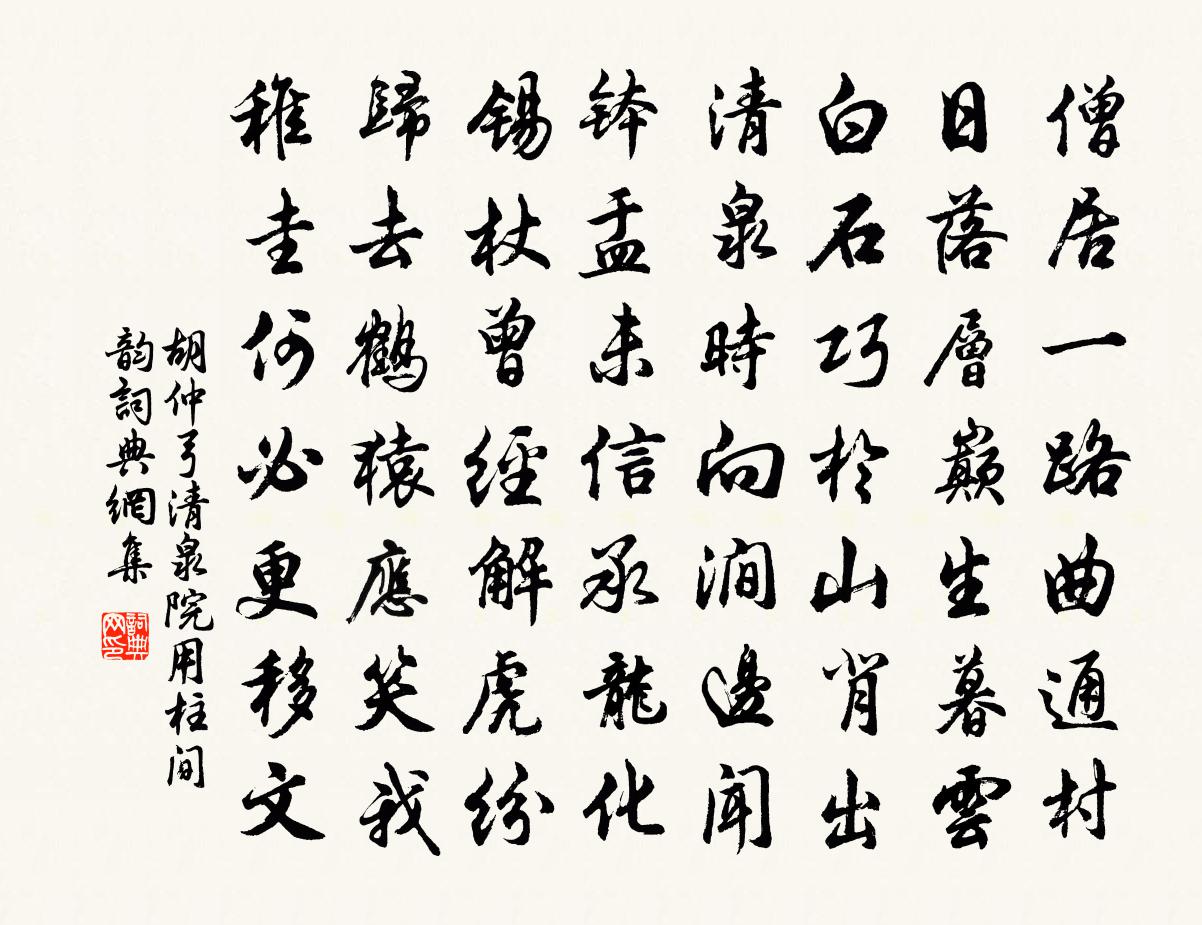 僧居一路曲通村
日落層巔生暮雲
白石巧於山肖出
清泉時向澗邊聞
鉢盂未信承龍化
錫杖曾經解虎紛
歸去鶴猿應笑我
稚圭何必更移文
胡仲弓清泉院用柱间
韵詞典網集
詞典网印